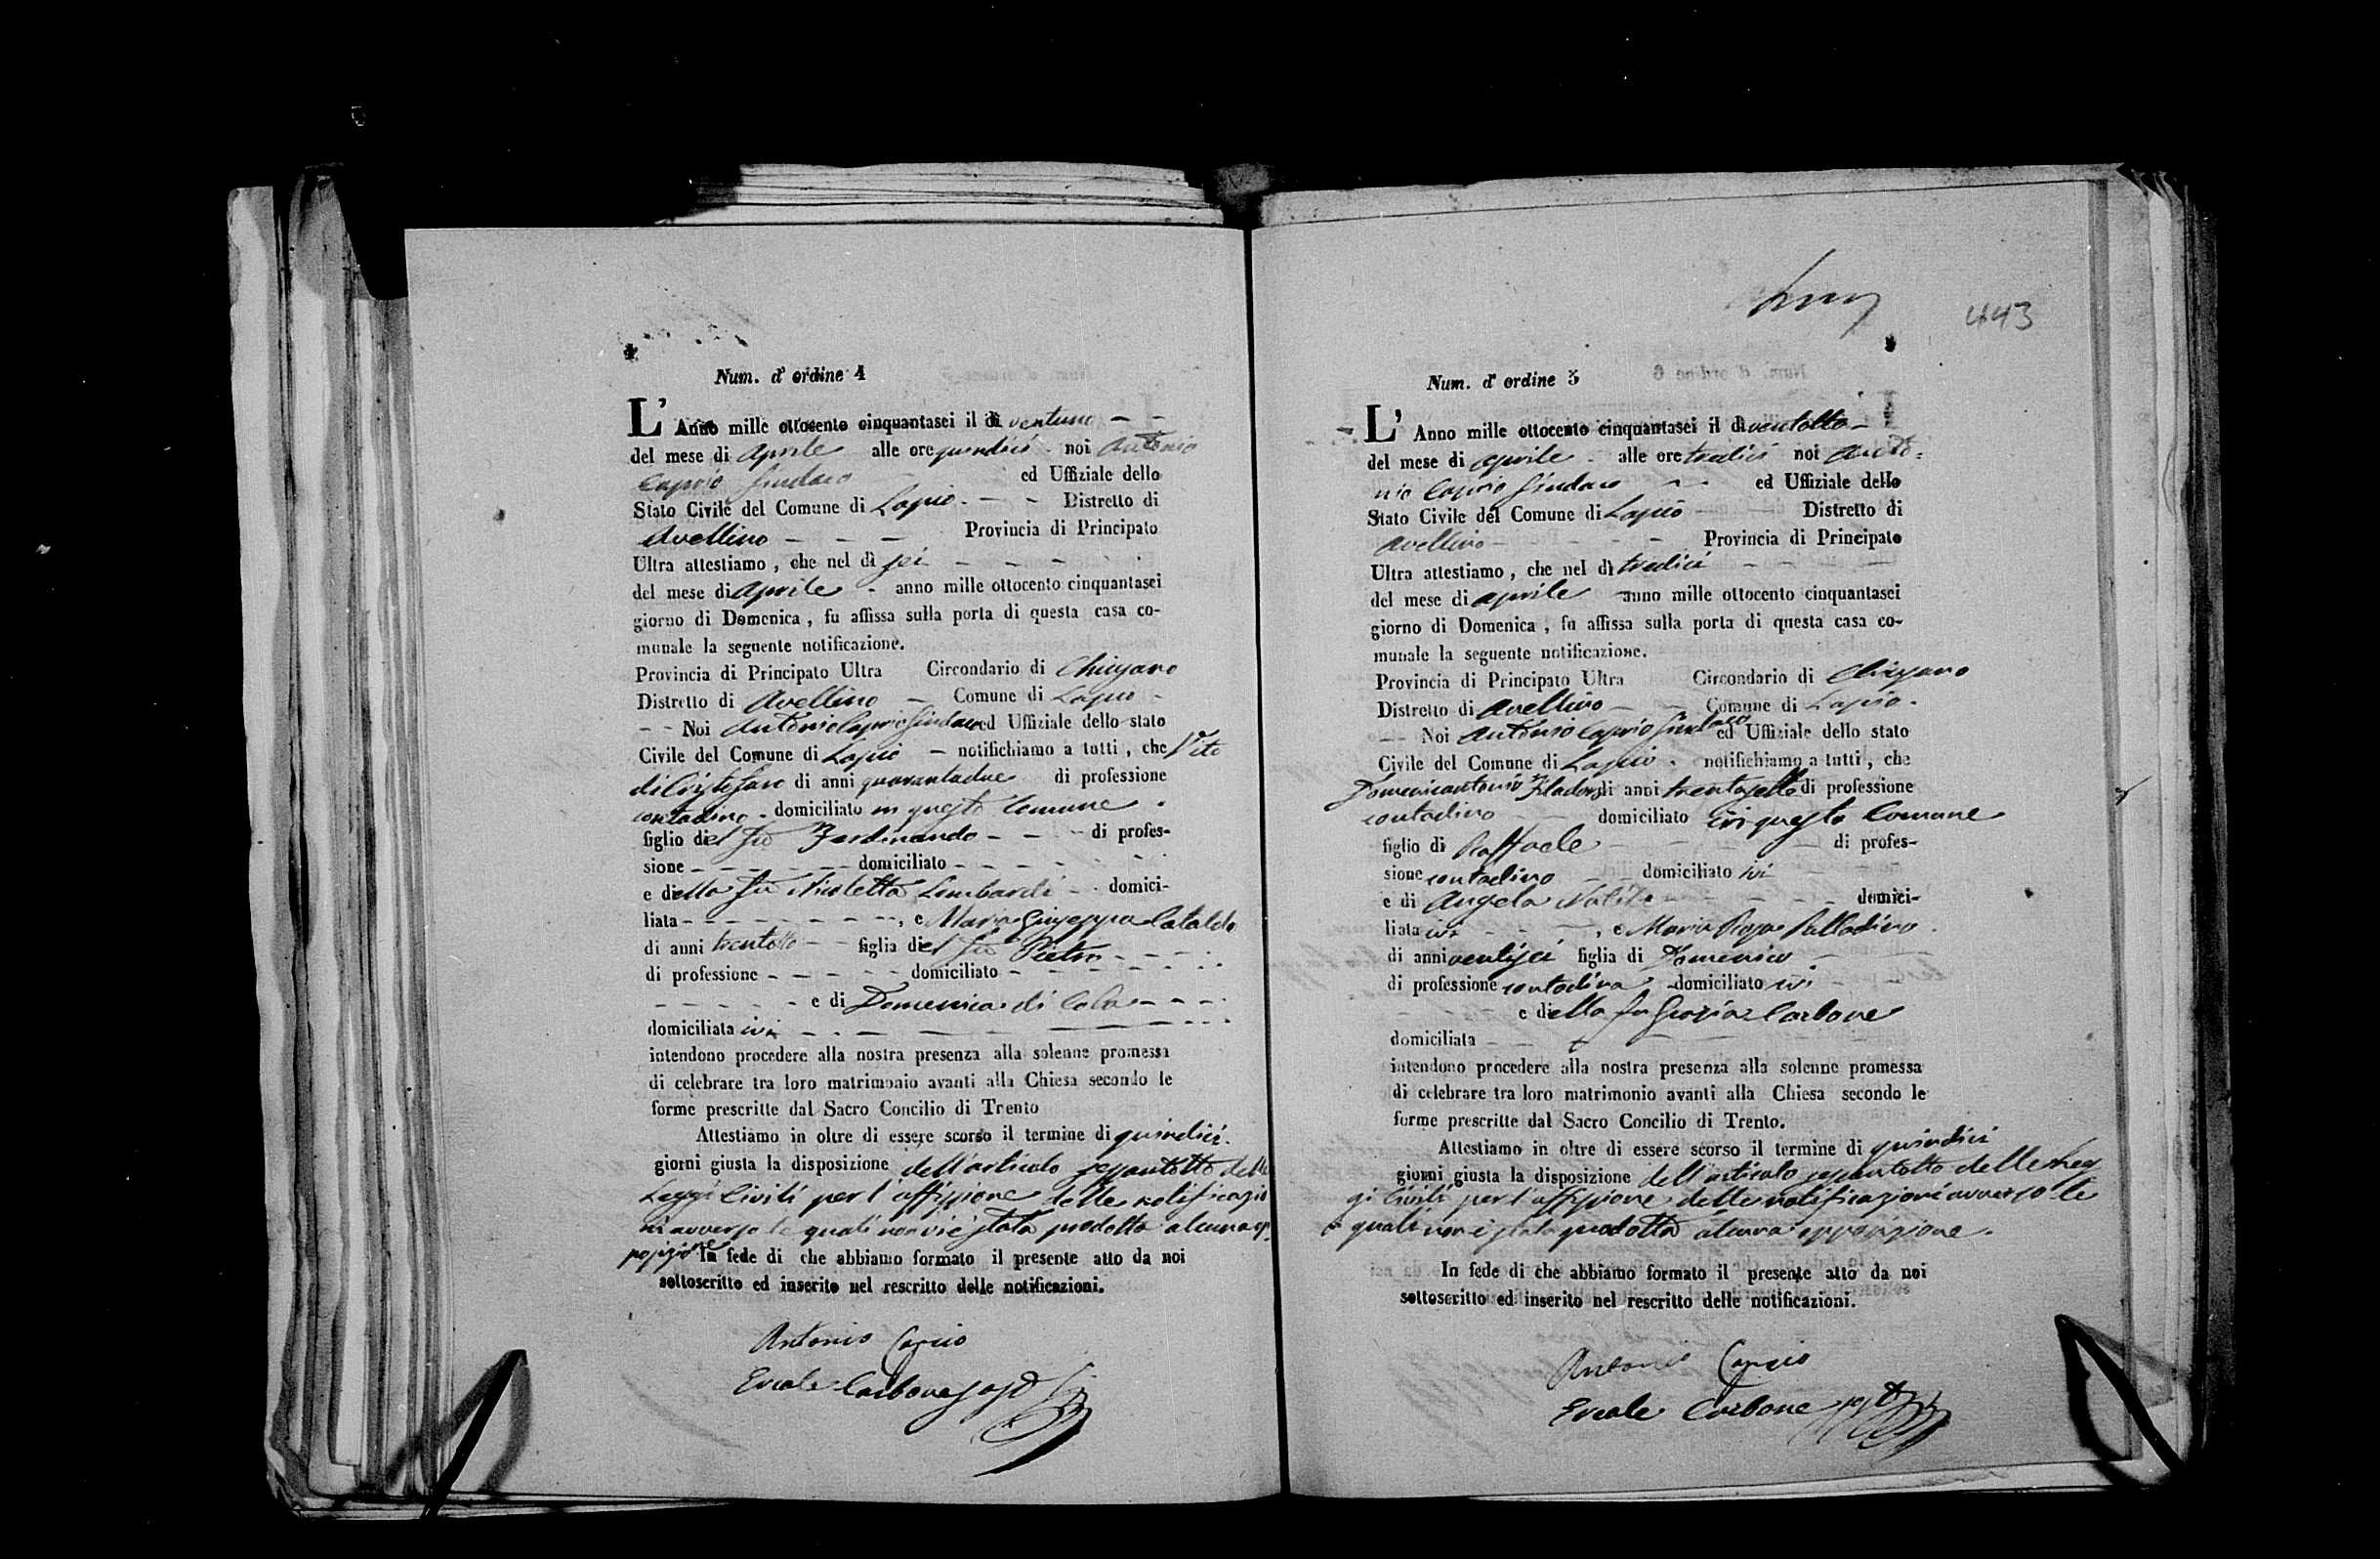 Num. d' ordine 4
L' Anno mille ottocento cinquantasei il di ventuno
del mese di Aprile alle ore quindici noi Antonio
Caprio Sindaco ed Uffiziale dello
Stato Civile del Comune di Lapio Distretto di
Avellino Provincia di Principato
Ultra attestiamo, che nel dì sei
del mese di Aprile anno mille ottocento cinquantasei
giorno di Domenica, fu affissa sulla porta di questa casa co-
munale la seguente notificazione.
Provincia di Principato Ultra Circondario di Chiusano
Distretto di Avellino Comune di Lapio
Noi Antonio Caprio Sindaco ed Uffiziale dello stato
Civile del Comune di Lapio notifichiamo a tutti, che Vito
di Cristofaro di anni quarantadue di professione
contadino domiciliato in questo Comune
figlio del fu Ferdinando di profes-
sione domiciliato
e della fu Nicoletta Lombardi domici-
liata , e Maria Giuseppa Cataldo
di anni trentotto figlia del fu Pietro
di professione domiciliato
e di Domenica di Cola
domiciliata ivi
intendono procedere alla nostra presenza alla solenne promessa
di celebrare tra loro matrimonio avanti alla Chiesa secondo le
forme prescritte dal Sacro Concilio di Trento
Attestiamo in oltre di essere scorso il termine di quindici
giorni giusta la disposizione dell'articolo sessantotto delle
Leggi Civili per l'affissione delle notificazio
ni avverso le quali non vi è stata prodotta alcuna op
posizione In fede di che abbiamo formato il presente atto da noi
sottoscritto ed inserito nel rescritto delle notificazioni.
Antonio Caprio
Ercole Carbone
443
Num. d' ordine 5
L' Anno mille ottocento cinquantasei il dì ventotto
del mese di aprile alle ore tredici noi Anto=
nio Caprio Sindaco ed Uffiziale dello
Stato Civile del Comune di Lapio Distretto di
Avellino Provincia di Principato
Ultra attestiamo, che nel dì tredici
del mese di aprile anno mille ottocento cinquantasei
giorno di Domenica, fu affissa sulla porta di questa casa co-
munale la seguente notificazione.
Provincia di Principato Ultra Circondario di Chiusano
Distretto di Avellino Comune di Lapio.
Noi Antonio Caprio Sindaco ed Uffiziale dello stato
Civile del Comune di Lapio notifichiamo a tutti, che
Domenicantonio di anni trentasette di professione
contadino domiciliato in questo Comune
figlio di Raffaele di profes-
sione contadino domiciliato ivi
e di Angela domici-
liata ivi , e Maria Rosa Palladino
di anni ventisei figlia di Domenico
di professione contadina domiciliato ivi
e della fu Grazia Carbone
domiciliata
intendono procedere alla nostra presenza alla solenne promessa
di celebrare tra loro matrimonio avanti alla Chiesa secondo le
forme prescritte dal Sacro Concilio di Trento.
Attestiamo in oltre di essere scorso il termine di quindici
giorni giusta la disposizione dell'articolo sessantotto delle Leg
gi Civili per l'affissione delle notificazioni avverso le
quali non è stata prodotta alcuna opposizione.
In fede di che abbiamo formato il presente atto da noi
sottoscritto ed inserito nel rescritto delle notificazioni.
Antonio Caprio
Ercole Carbone